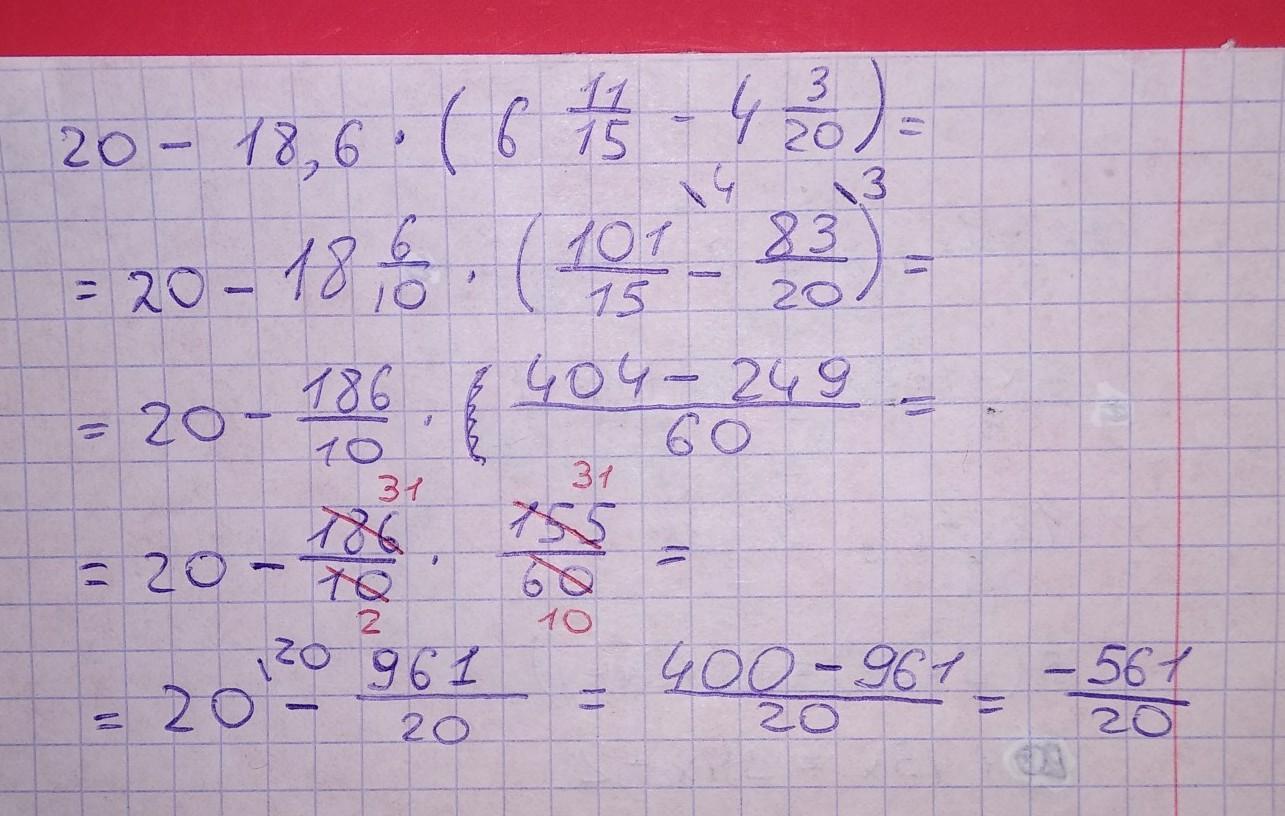 20 - 18,6 · ( 6 11/15 - 4 3/20 ) =
= 20 - 18 6/10 · ( 101/15 \4 - 83/20 \3 ) =
= 20 - 186/10 · ( 404 - 249 / 60 =
= 20 - 186/10 31 2 · 155/60 31 10 =
= 20 \20 - 961/20 = 400 - 961 / 20 = -561/20